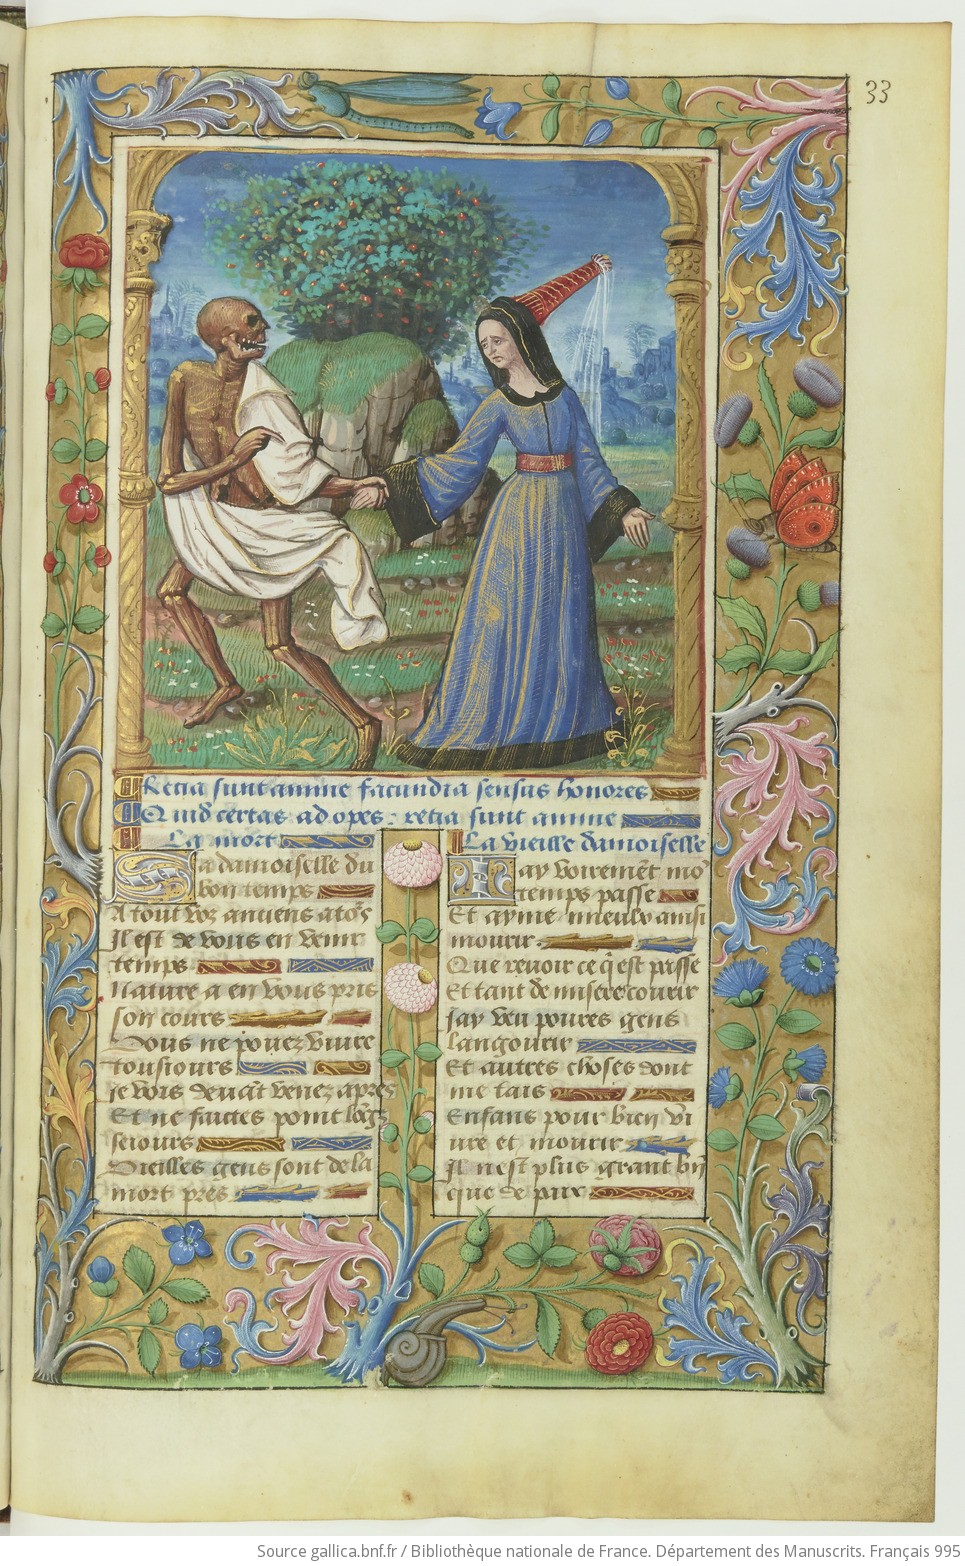 33
Retia sunt anime facundia sensus honores
Quid certas ad opes: retia sunt anime
La mort
Sa damoiselle du
bon temps
A tout voz anciens ato9
Il est de vous en venir
temps
Nature a en vous pris
son cours
Vous ne pouez viure
tousiours
Je vois deuāt venez apres
Et ne faictes point lōgz
seiours
Vieilles gens sont de la
mort pres
La vieille damoiselle
Iay voirement mō
temps passe
Et ayme mieulx ainsi
mourir
Que reuoir ce q̄ est passe
Et tant de misere courir
Jay veu poures gens
langourir
Et autres choses dont
me tais
Enfans pour bien vi
ure et mourir
Il nest plus grant bn̄
que de paix
Source gallica.bnf.fr / Bibliothèque nationale de France. Département des Manuscrits. Français 995